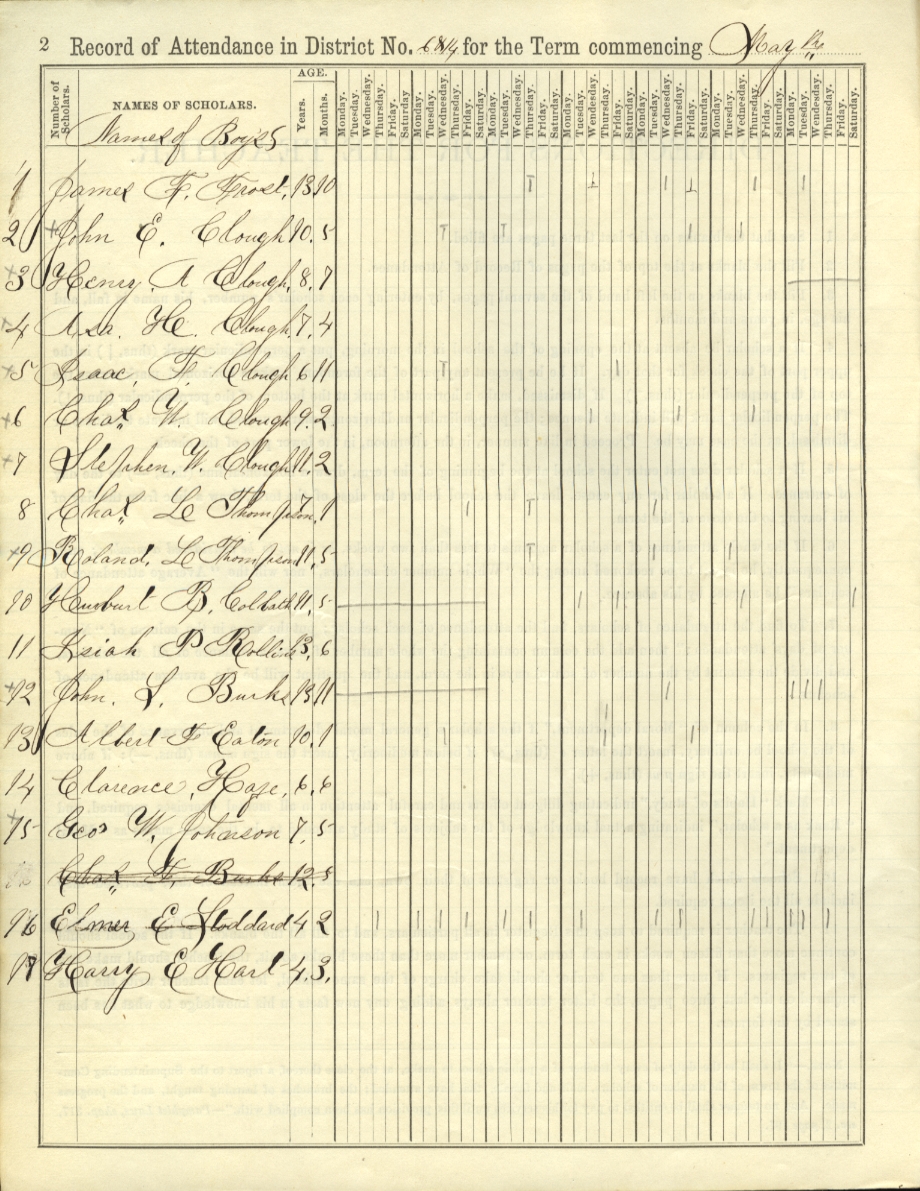 2 Record of Attendance in District No. 6 & 14 for the Term commencing May
Number of Scholars.
NAMES OF SCHOLARS.
AGE.
Years. Months.
Monday. Tuesday. Wednesday. Thursday. Friday. Saturday Monday. Tuesday. Wednesday. Thursday. Friday. Saturday. Monday. Tuesday. Wednesday. Thursday. Friday. Saturday. Monday. Tuesday. Wednesday. Thursday. Friday. Saturday. Monday. Tuesday. Wednesday. Thursday. Friday. Saturday. Monday. Tuesday. Wednesday. Thursday. Friday. Saturday. Monday. Tuesday. Wednesday. Thursday. Friday. Saturday.
Names of Boys
1 James F. Frost, 13 10
2 John E. Clough 10. 5
3 Henry A Clough, 8. 7
4 Asa. H. Clough. 7. 4
5 Isaac, F. Clough 6 11
6 Chas. W. Clough 9. 2
7 Stephen. W. Clough 11. 2
8 Chas. L Thompson, 7. 1
9 Roland, L Thompson 11, 5
10 B. Colbath 11, 5
11 P Rollins 13. 6
12 John. S. Burke 13 11
13 Albert F Eaton 10. 1
14 Clarence, 6. 6
15 Geo W. Johnson 7. 5
Chas. F. Burke 12. 5
16 Elmer E Stoddard 4 2
17 Harry E Hart 4. 3.